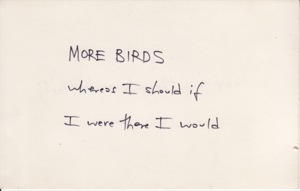 MORE BIRDS
whereas I should if
I were there I would